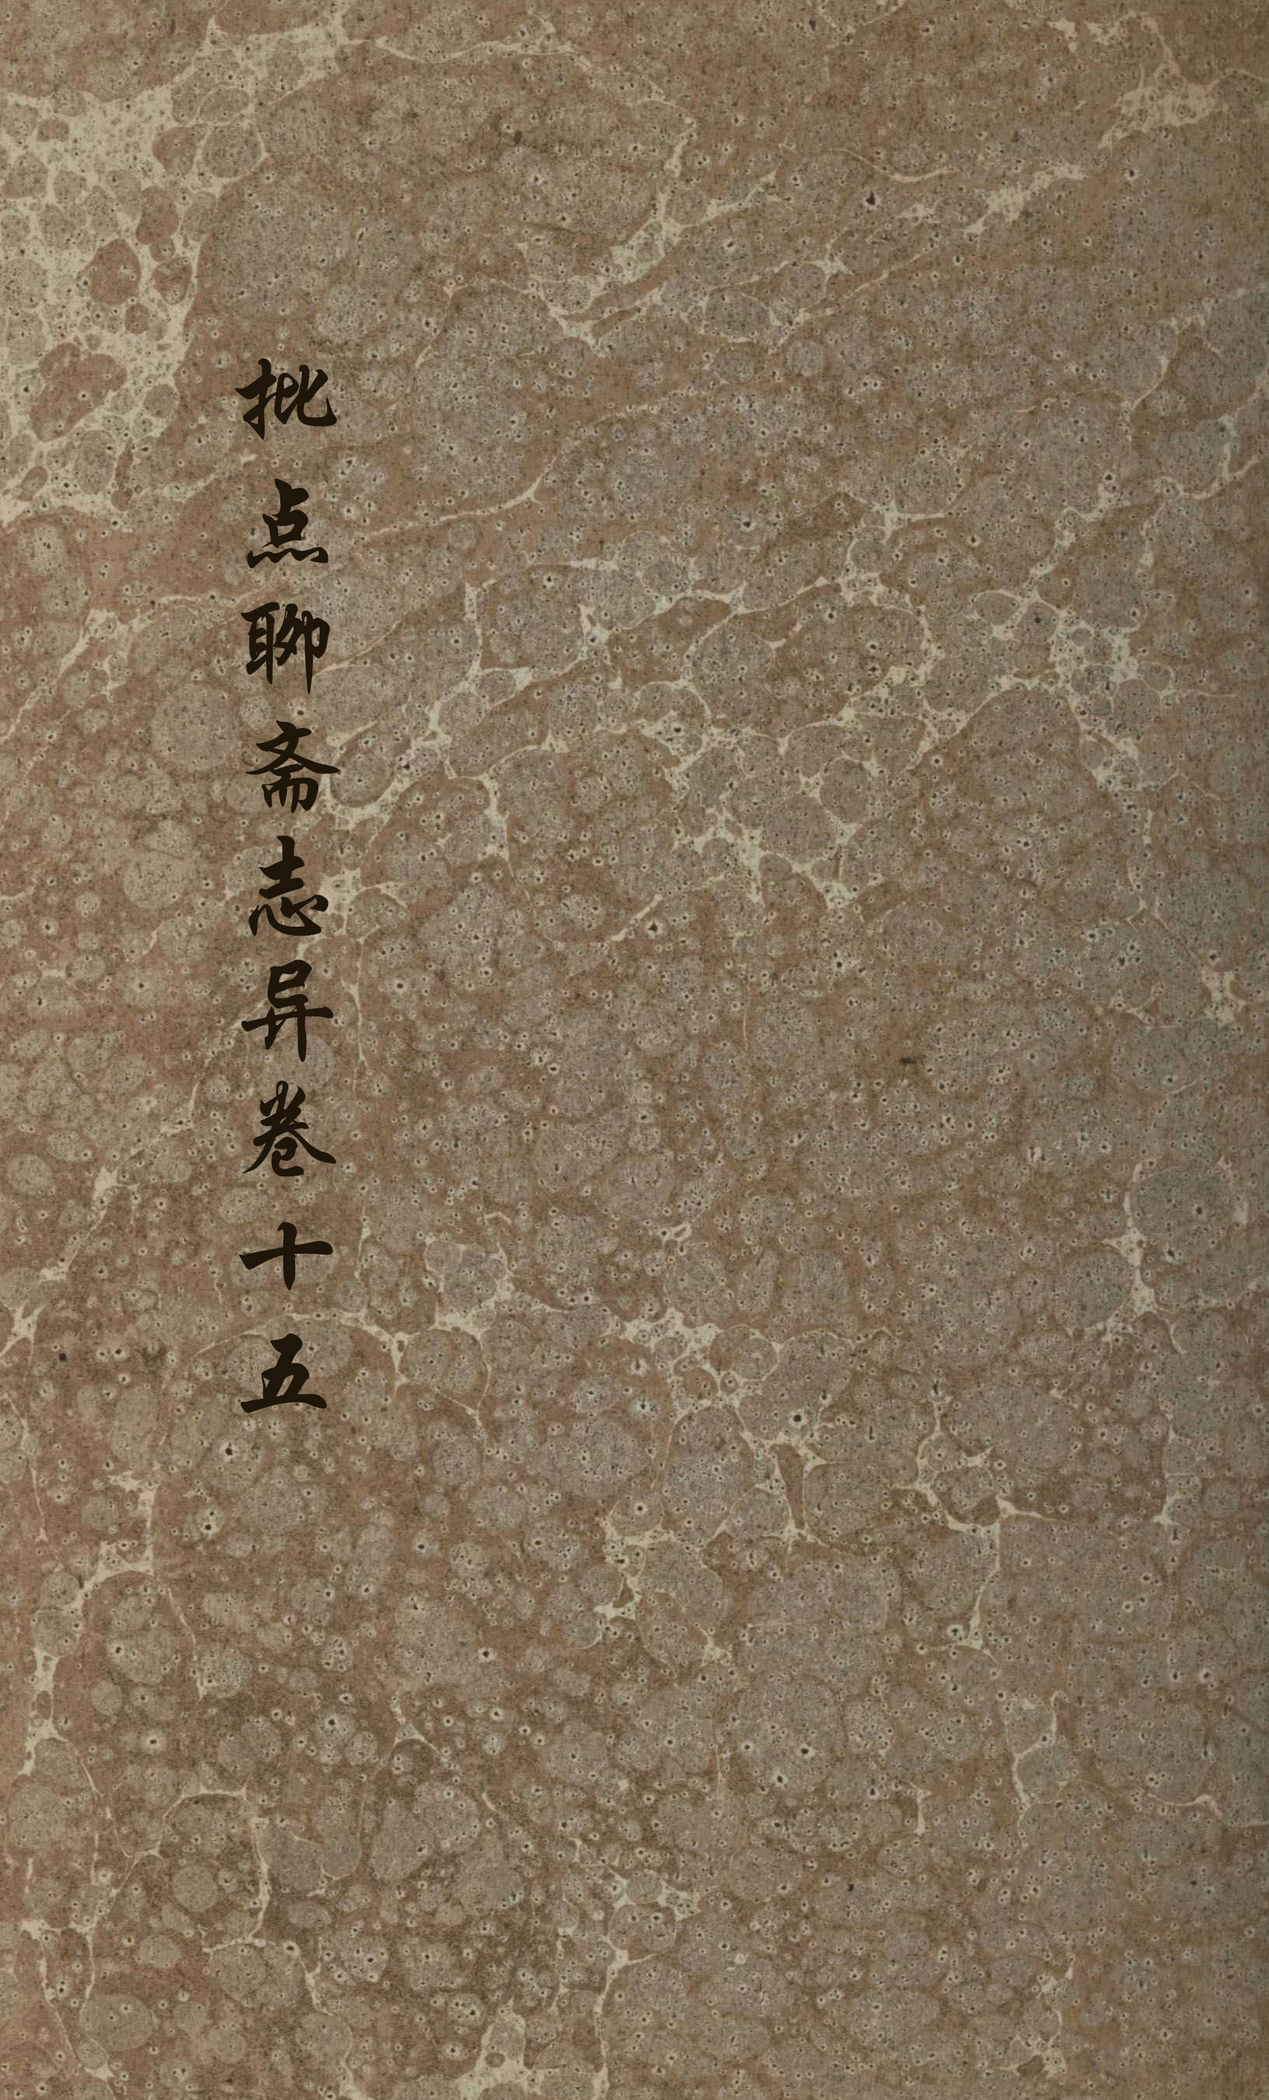 批点聊斋志异卷十五